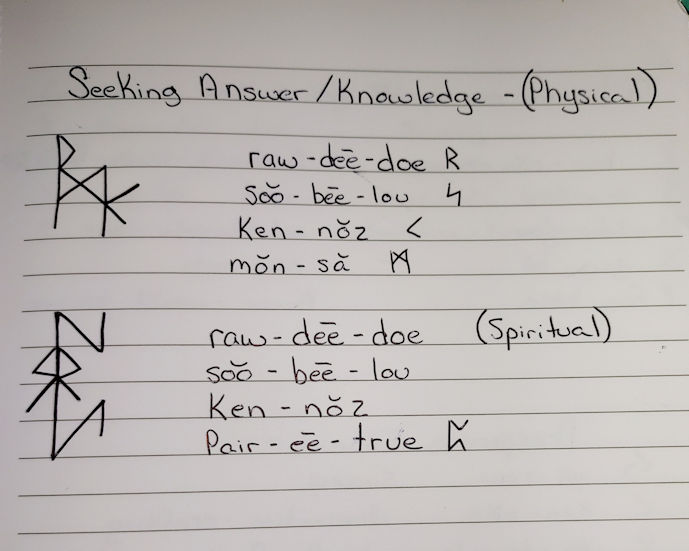 Seeking Answer/Knowledge - (Physical)
raw - dēē - doe ᚱ
sŏŏ - bēē - lou ᛋ
Ken - nŏz ᚲ
mŏn - să ᛗ
raw - dēē - doe (Spiritual)
sŏŏ - bēē - lou
Ken - nŏz
Pair - ēē - true ᛈ